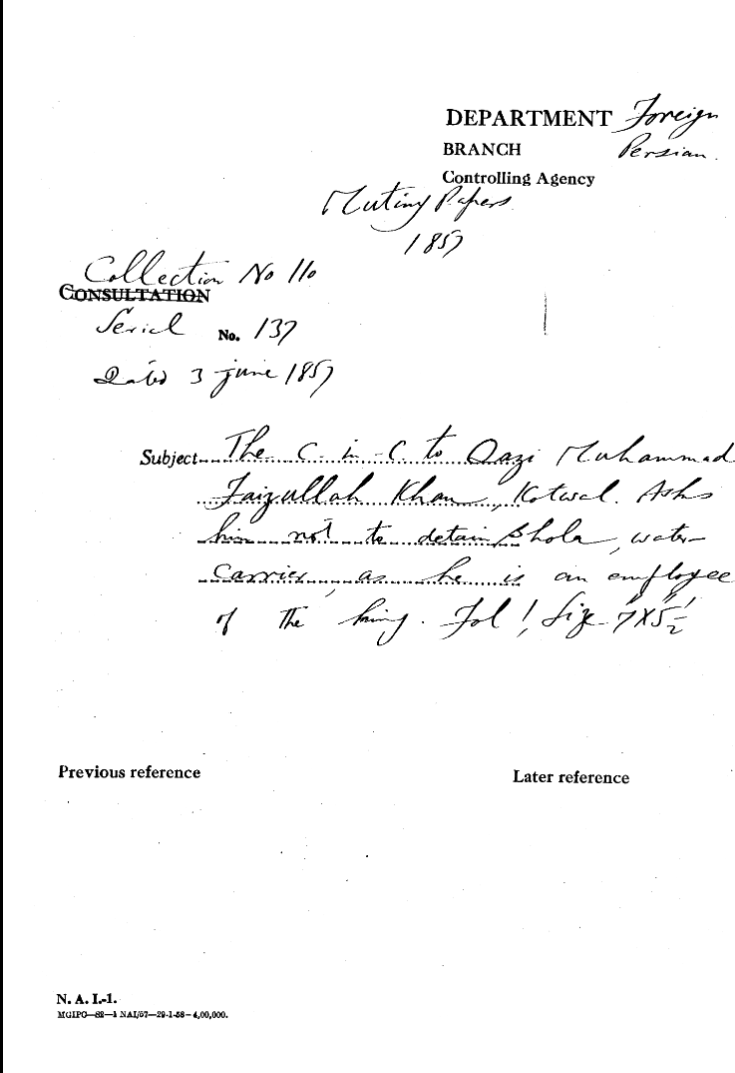 DEPARTMENT Foreign
BRANCH Persian.
Controlling Agency
Mutiny Papers
1857
Collection No 110
CONSULTATION
Serial No. 137
Dated 3 june 1857
Subject The C-in-C to Qazi Muhammad
Faizullah Khan, Kotwal. Asks
him not to detain Bhola, water-
carrier, as he is an employee
of the king. Fol 1, Size 7"X5½"
Previous reference
Later reference
N. A. I.-1.
MGIPC—82—1 NAI/57—29-1-58—4,00,000.